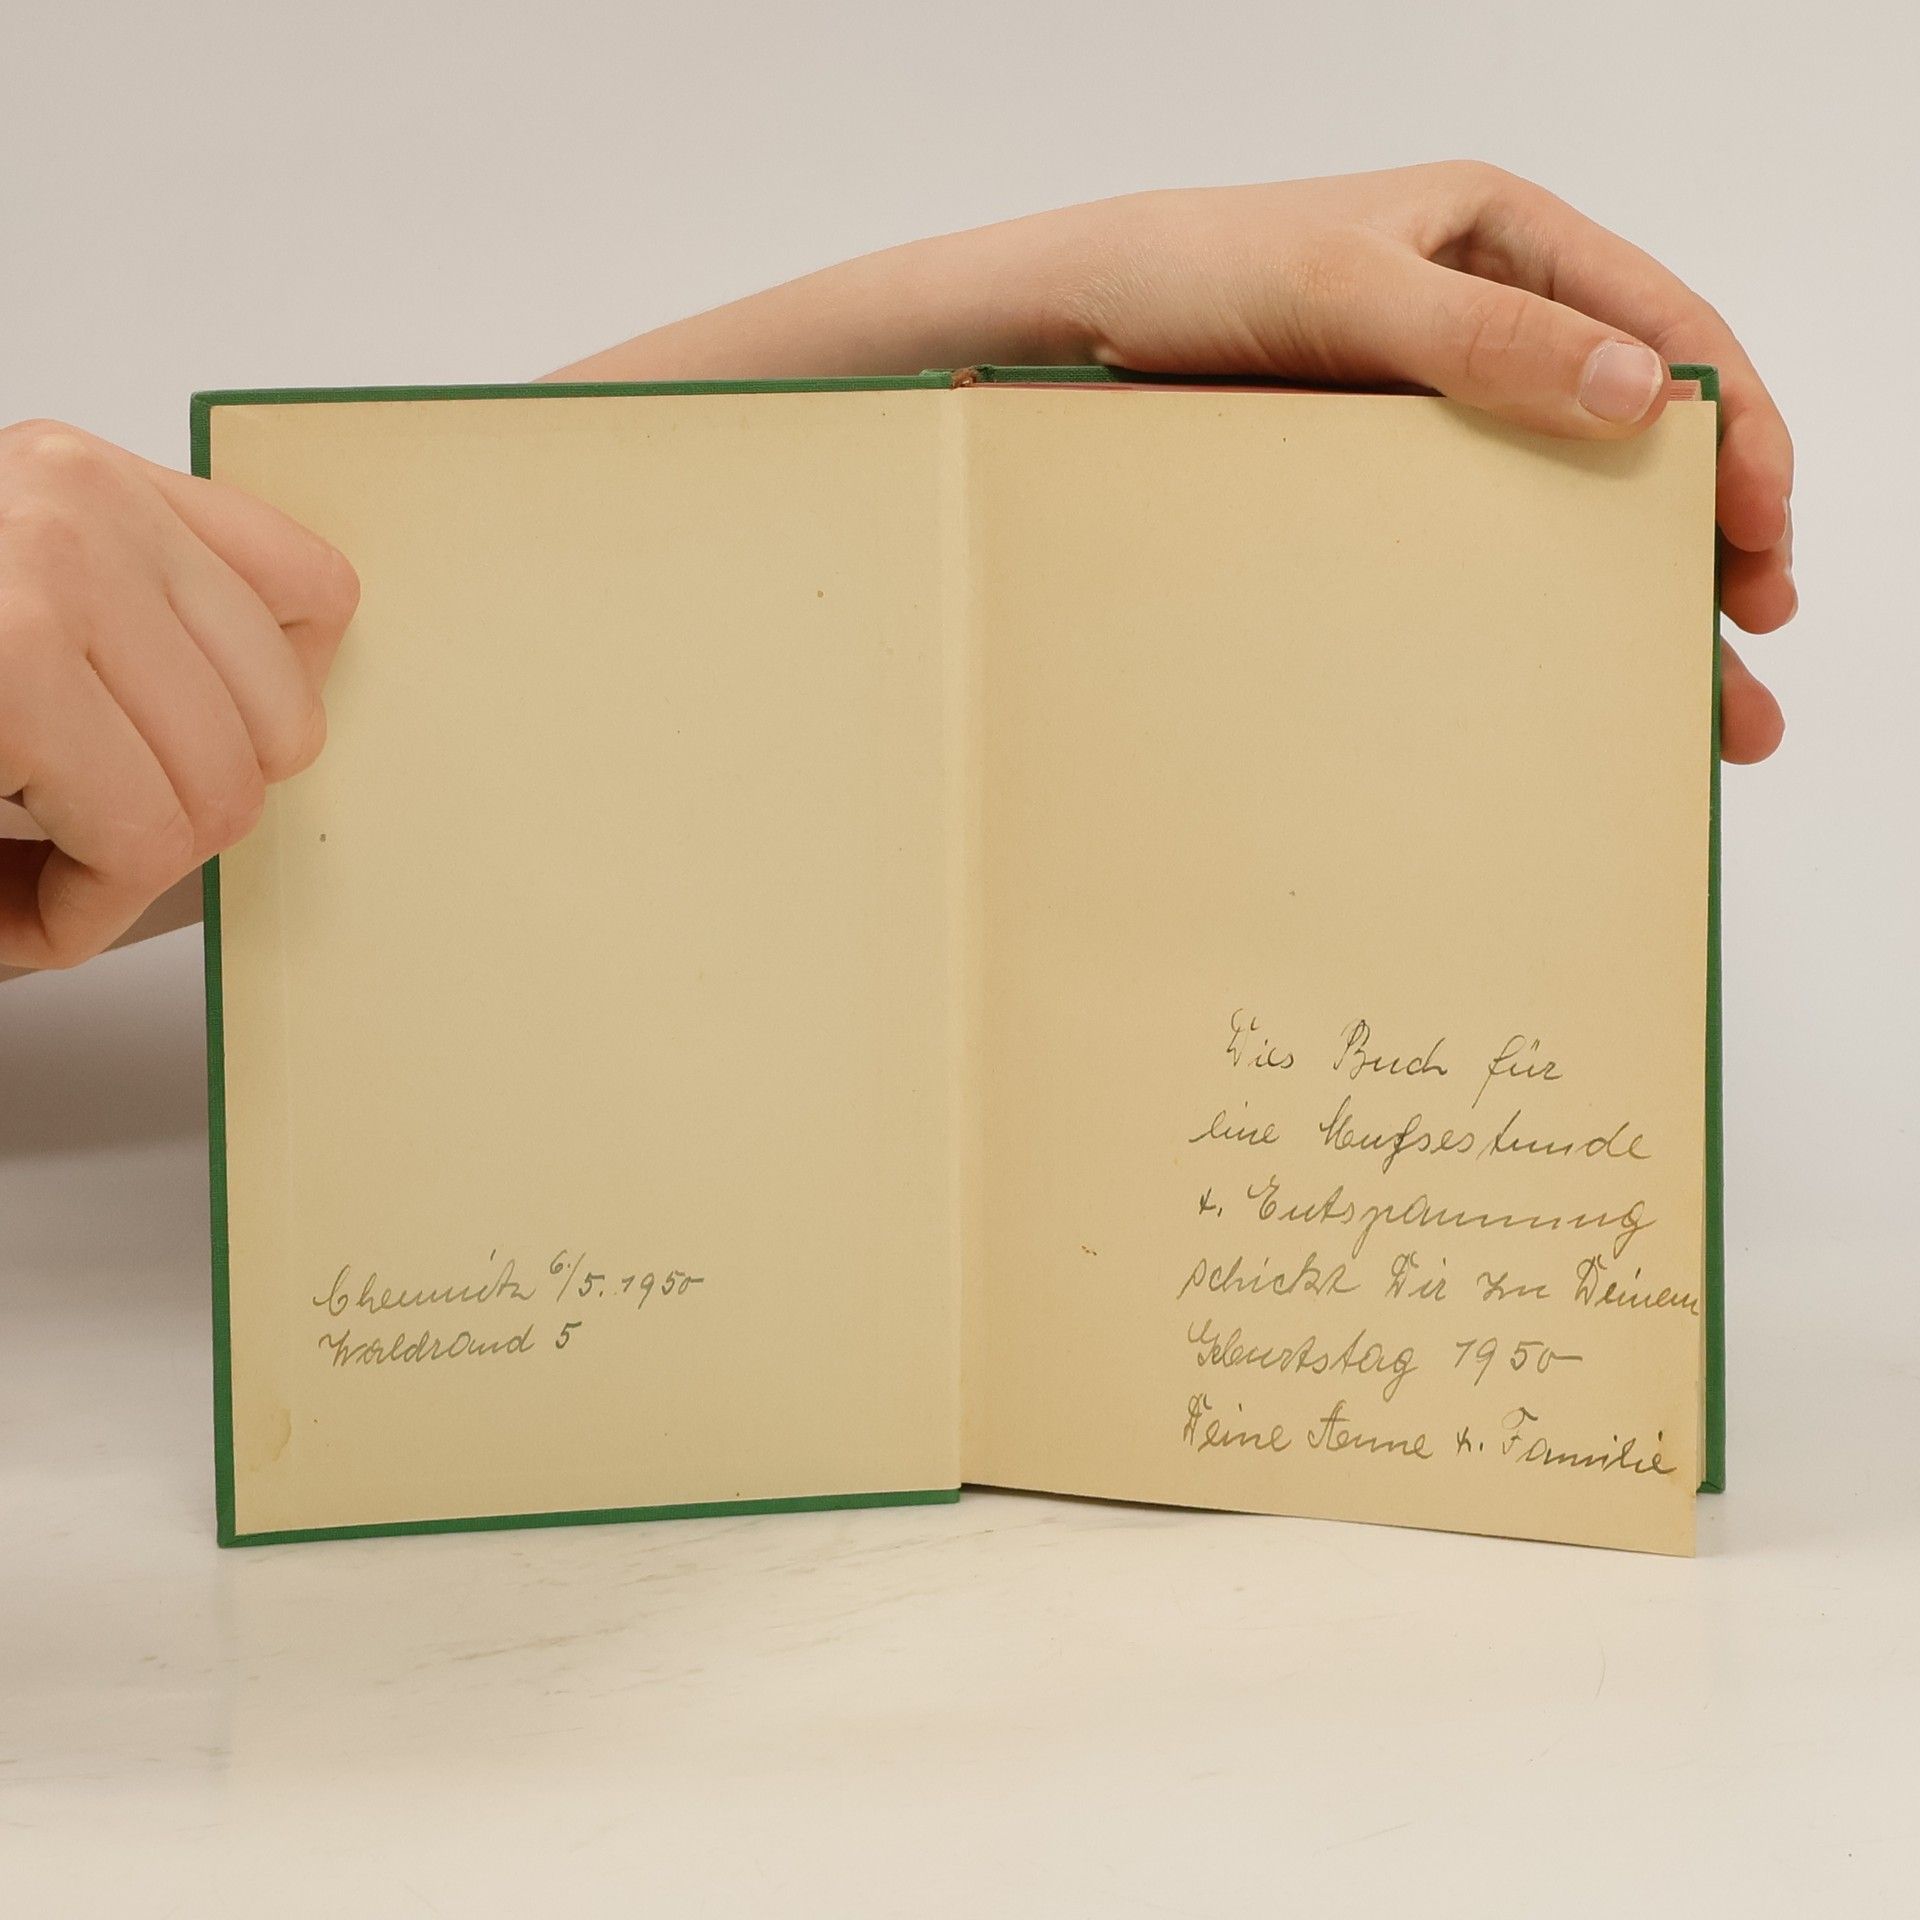 Chemnitz 6./5. 1950
Waldrand 5
Dies Buch für
eine Mußestunde
u. Entspannung
schickt Dir zu Deinem
Geburtstag 1950
Deine Änne u. Familie